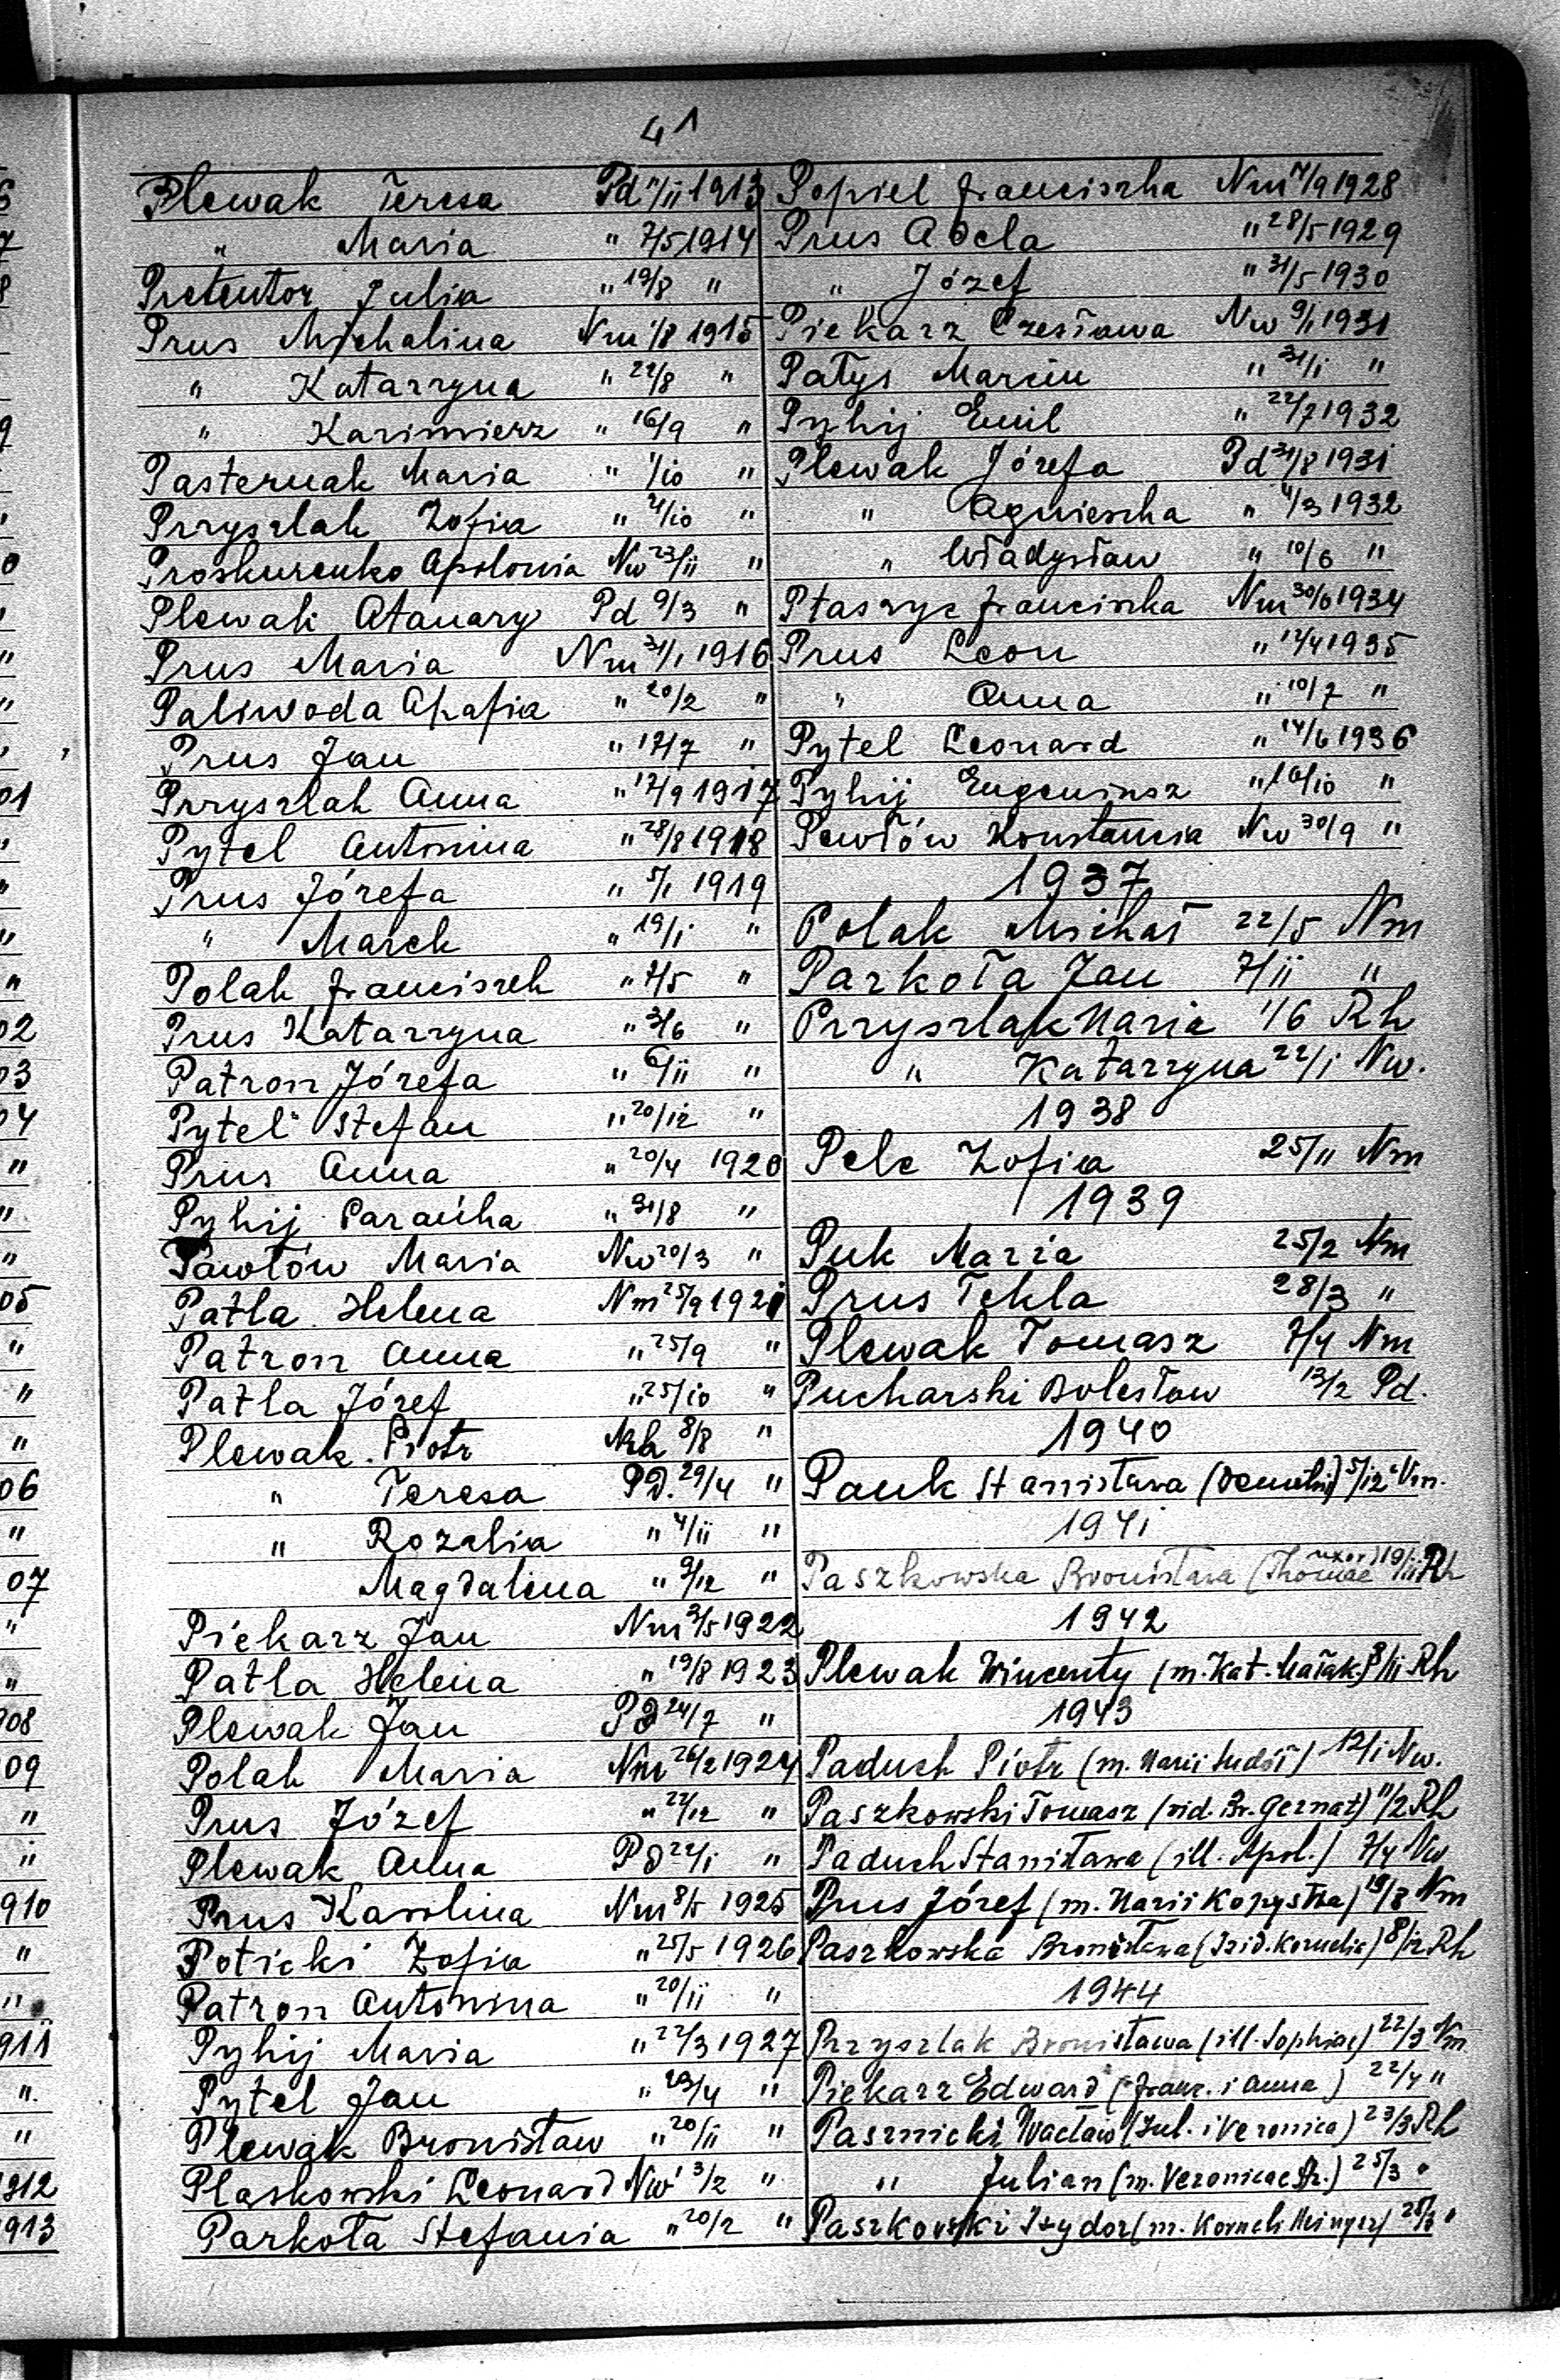 41
Plewak Teresa Pd 1913
" Maria " 7/5 1914
Pretentor Julia " 19/8 "
Prus Michalina Nm 1/8 1915
" Katarzyna " 22/8 "
" Kazimierz " 16/9 "
Pasternak Maria " 1/10 "
Przyszlak Zofia " /10 "
Proskurenko Apolonia Nw 23/11 "
Plewak Atanazy Pd 9/3 "
Prus Maria Nm 31/1 1916
Paliwoda Ahafia " 20/2 "
Prus Jan " 17/7 "
Przyszlak Anna " 12/9 1917
Pytel Antonina " 28/8 1918
Prus Józefa " 5/1 1919
" Marek " 19/1 "
Polak Franciszek " 2/5 "
Prus Katarzyna " 3/6 "
Patron Józefa " 6/11 "
Pytel Stefan " 20/12 "
Prus Anna " 20/4 1920
Pyhij Parańka " 31/8 "
Pawłów Maria Nw 20/3 "
Patla Helena Nm 25/9 1921
Patron Anna " 25/9 "
Patla Józef " 25/10 "
Plewak Piotr 8/8 "
" Teresa PD. 29/4 "
" Rozalia " 4/11 "
Magdalena " 9/12 "
Piekarz Jan Nm 3/5 1922
Patla Helena " 19/8 1923
Plewak Jan PD 24/7 "
Polak Maria Nm 26/2 1924
Prus Józef " 22/12 "
Plewak Anna PD 22/1 "
Prus Karolina Nm 8/5 1925
Poticki Zofia " 25/5 1926
Patron Antonina " 20/11 "
Pyhij Maria " 22/3 1927
Pytel Jan " 23/4 "
Plewak Bronisław " 20/11 "
Plaskowski Leonard Nw 3/2 "
Parkoła Stefania " 20/2 "
Popiel Franciszka Nm 17/9 1928
Prus Adela " 28/5 1929
" Józef " 31/5 1930
Piekarz Czesława Nw 9/1 1931
Patys Marcin " 31/1 "
Pyhij Emil " 22/7 1932
Plewak Józefa Pd 31/8 1931
" Agnieszka " 4/3 1932
" Władysław " 10/6 "
Ptaszyc Franciszka Nm 30/6 1934
Prus Leon " 12/4 1935
" Anna " 10/7 "
Pytel Leonard " 14/6 1936
Pyhij Eugeniusz " 16/10 "
Pewłów Konstancia Nw 30/9 "
1937
Polak Michał 22/5 Nm
Parkoła Jan 7/11 "
Przyszlak Maria 1/6 Rh
" Katarzyna 22/1 Nw.
1938
Pelc Zofia 25/11 Nm
1939
Puk Maria 25/2 Nm
Prus Tekla 28/3 "
Plewak Tomasz 7/4 Nm
Pucharski Bolesław 13/2 Pd.
1940
Pauk Stanisława 5/12 Nm.
1941
Paszkowska Bronisława (Thomae uxor) 19/11 Rh
1942
Plewak Wincenty (m. Kat. Małak) 8/11 Rh
1943
Paduch Piotr (m. Marii ) 12/1 Nw.
Paszkowski Tomasz (vid. Br. Gernat) 11/2 Rh
Paduch Stanisława (ill. Apol.) 7/4 Nw
Prus Józef (m. Marii Kopystka) 19/8 Nm
Paszkowska Bronisława (Izid. Kornelia) 8/12 Rh
1944
Przyszlak Bronisława (ill. Sophiae) 22/3 Nm
Piekarz Edward (Franc. i Anna) 22/4 "
Pasznicki Wacław (Jul. i Veronica) 23/3 Rh
" Julian (m. Veronicae ) 25/3 "
Paszkowski Izydor (m. Korneli ) "